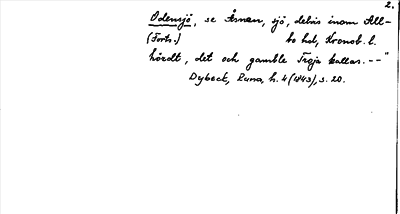 2.
Odensjö, se Åsnen, sjö, delvis inom All-
(Forts.) bo hd, Kronob. l.
hördt, det och gamble Troja kallas. --"
Dybeck, Runa, h. 4 (1843), s. 20.